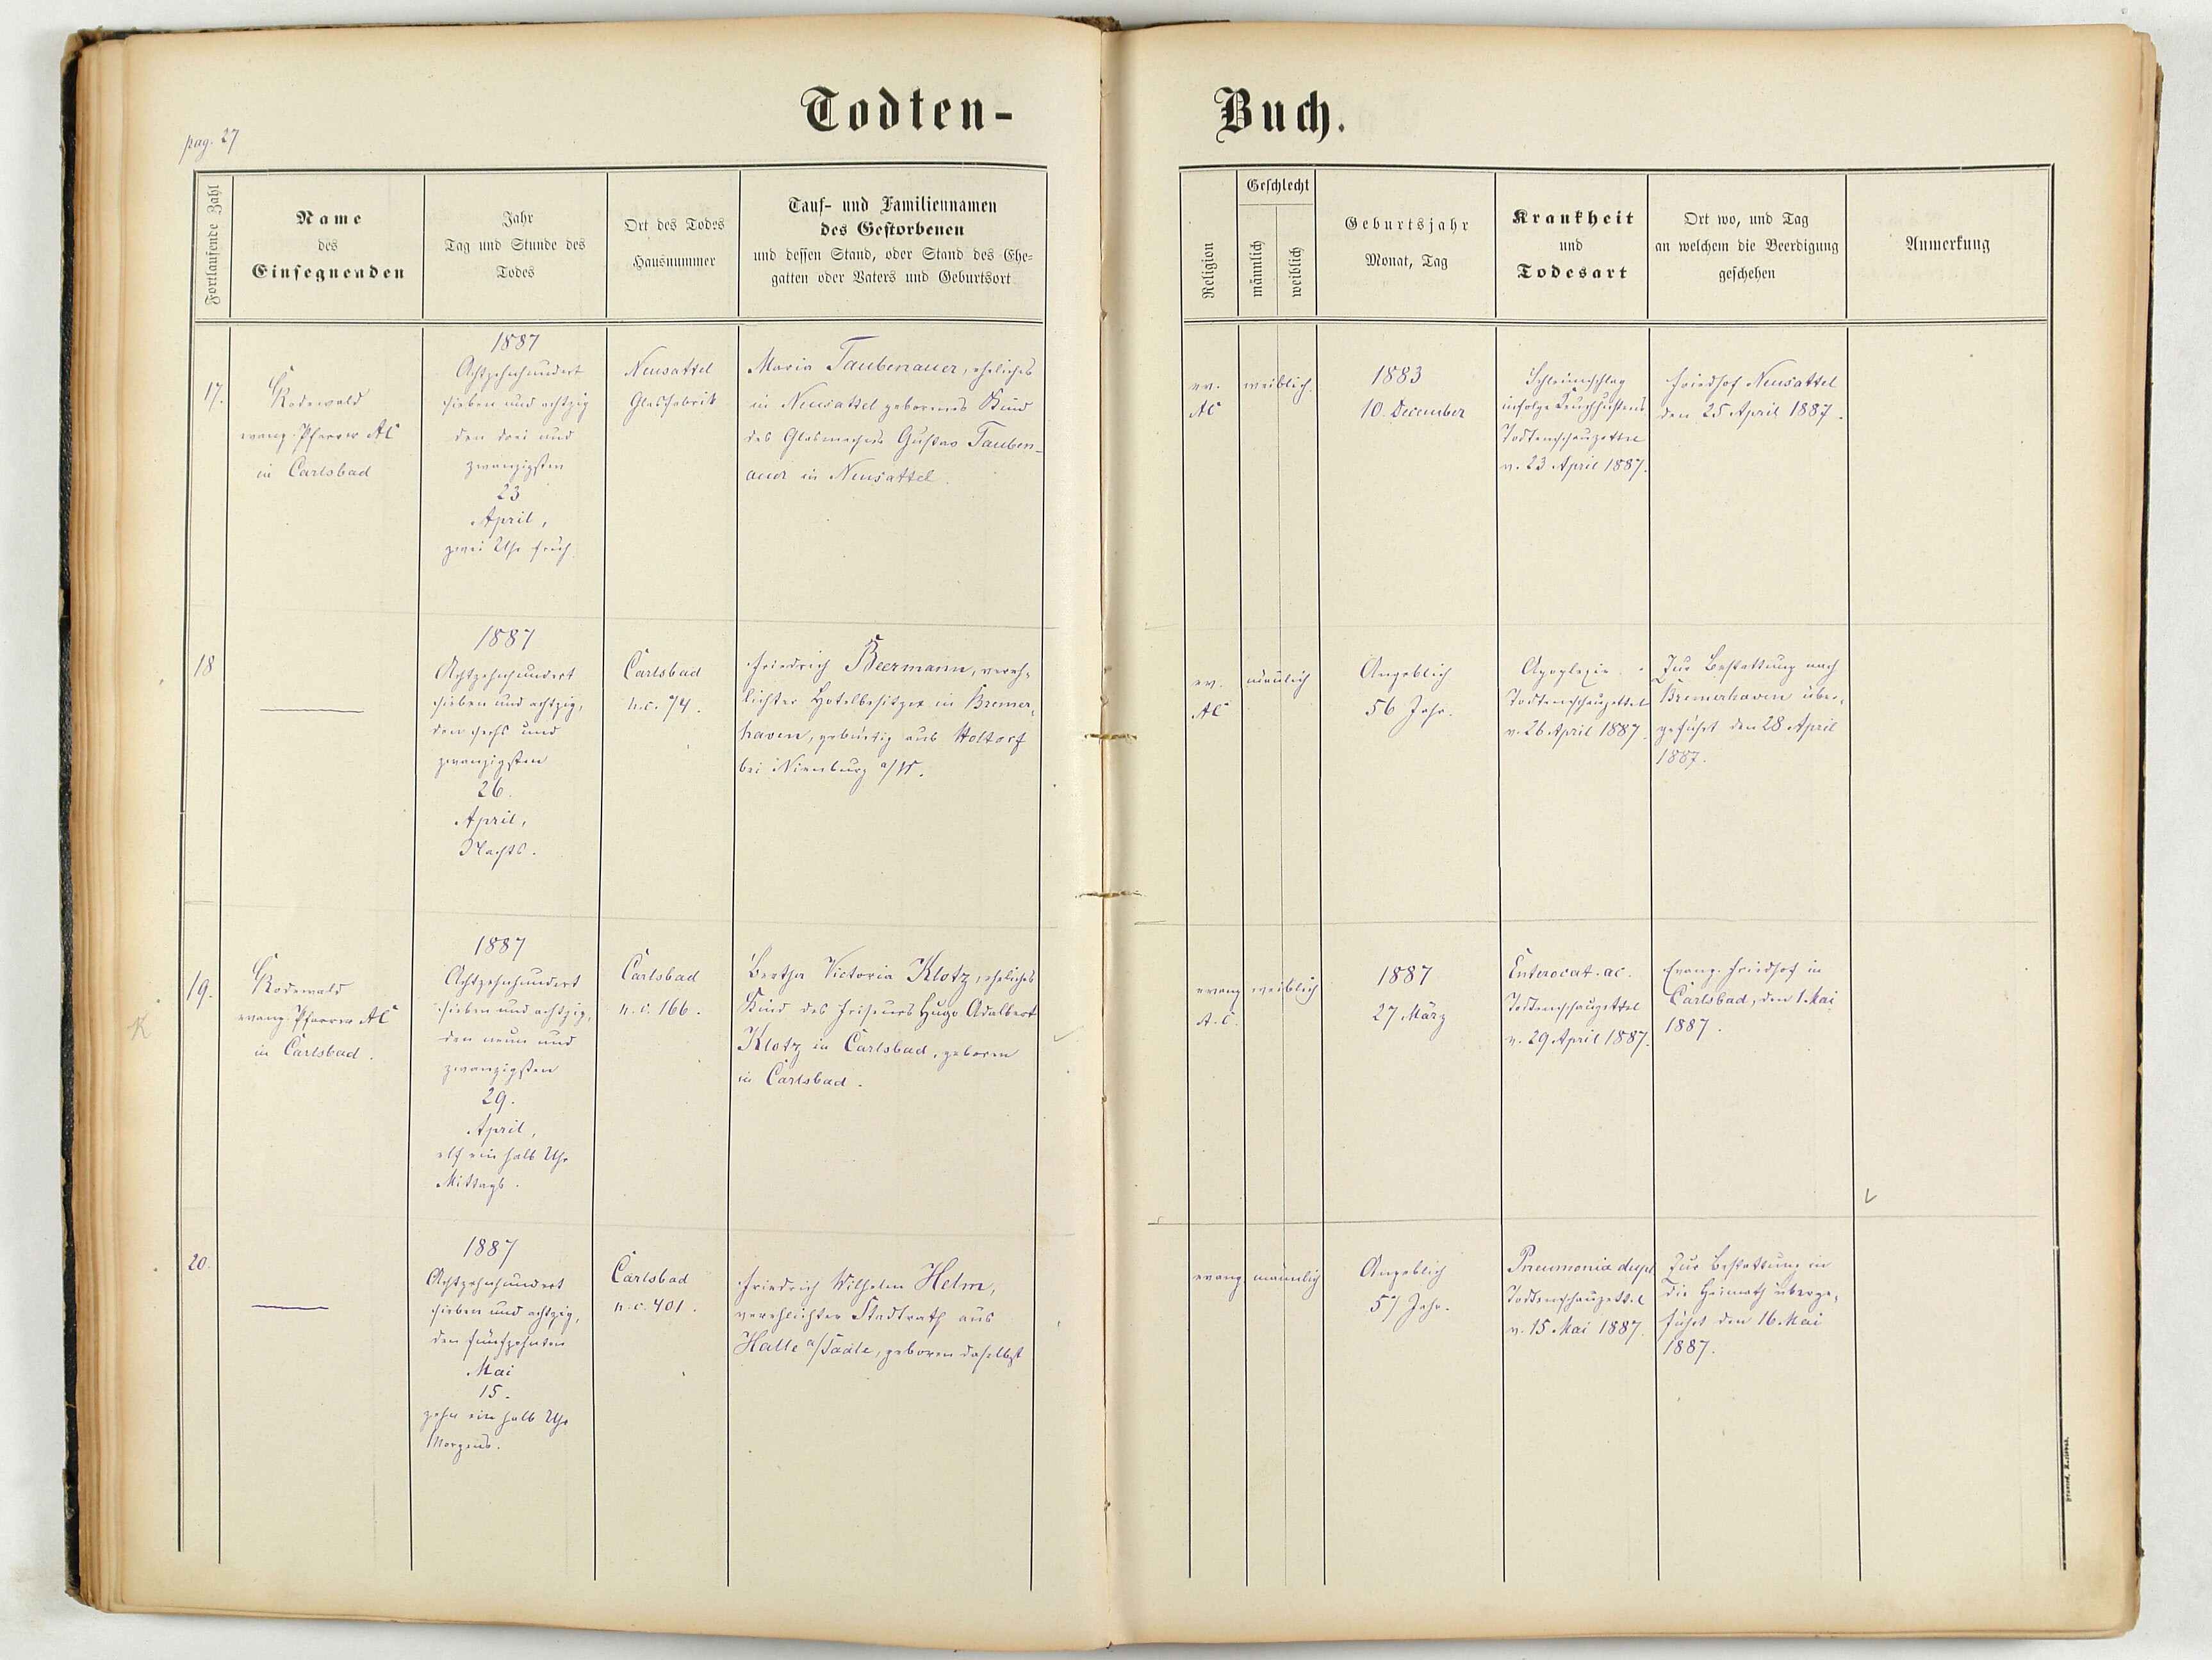 pag. 27
Todten-
Buch.
Fortlaufende Zahl
Name
des
Einsegnenden
Jahr
Tag und Stunde des
Todes
Ort des Todes
Hausnummer
Tauf- und Familiennamen
des Gestorbenen
und dessen Stand, oder Stand des Ehe-
gatten oder Vaters und Geburtsort
Religion
Geschlecht
männlich
weiblich
Geburtsjahr
Monat, Tag
Krankheit
und
Todesart
Ort wo, und Tag
an welchem die Beerdigung
geschehen
Anmerkung
17.
Rodewald
evang. Pfarrer AC
in Carlsbad
1887
Achtzehnhundert
sieben und achtzig
den drei und
zwanzigsten
23
April,
zwei Uhr früh.
Neusattel
Glasfabrik
Maria Taubenauer, eheliches
in Neusattel geborenes Kind
des Glasmachers Gustav Tauben-
auer in Neusattel.
ev.
AC
weiblich.
1883
10. December
Schleimschlag
infolge Keuchhustens
Todtenschauzettel
v. 23 April 1887.
Friedhof Neusattel
den 25 April 1887.
18
1887
Achtzehnhundert
sieben und achtzig,
den sechs und
zwanzigsten
26.
April,
Nachts.
Carlsbad
n.c. 74.
Friedrich Beermann, vereh-
lichter Hotelbesitzer in Bremer-
haven, gebürtig aus Holtorf
bei Nienburg a/W.
ev.
AC
männlich
Angeblich
56 Jahr.
Apoplexie.
Todtenschauzettel
v. 26 April 1887.
Zur Bestattung nach
Bremerhaven über-
geführt den 28 April
1887.
19.
K
Rodewald
evang. Pfarrer AC
in Carlsbad.
1887
Achtzehnhundert
sieben und achtzig,
den neun und
zwanzigsten
29.
April,
elf ein halb Uhr
Mittags.
Carlsbad
n.c. 166.
Bertha Victoria Klotz, eheliches
Kind des Friseurs Hugo Adalbert
Klotz in Carlsbad, geboren
in Carlsbad.
evang
A.C.
weiblich
1887
27 März
Enterocat. ac.
Todtenschauzettel
v. 29 April 1887.
Evang. Friedhof in
Carlsbad, den 1. Mai
1887.
20.
1887
Achtzehnhundert
sieben und achtzig,
den fünfzehnten
Mai
15.
zehn ein halb Uhr
Morgens.
Carlsbad
n.c. 401.
Friedrich Wilhelm Helm,
verehlichter Stadtrath aus
Halle a/Saale, geboren daselbst
evang.
männlich
Angeblich
57 Jahr.
Pneumonia dupl
Todtenschauzettel
v. 15 Mai 1887.
Zur Bestattung in
die Heimath überge-
führt den 16. Mai
1887.